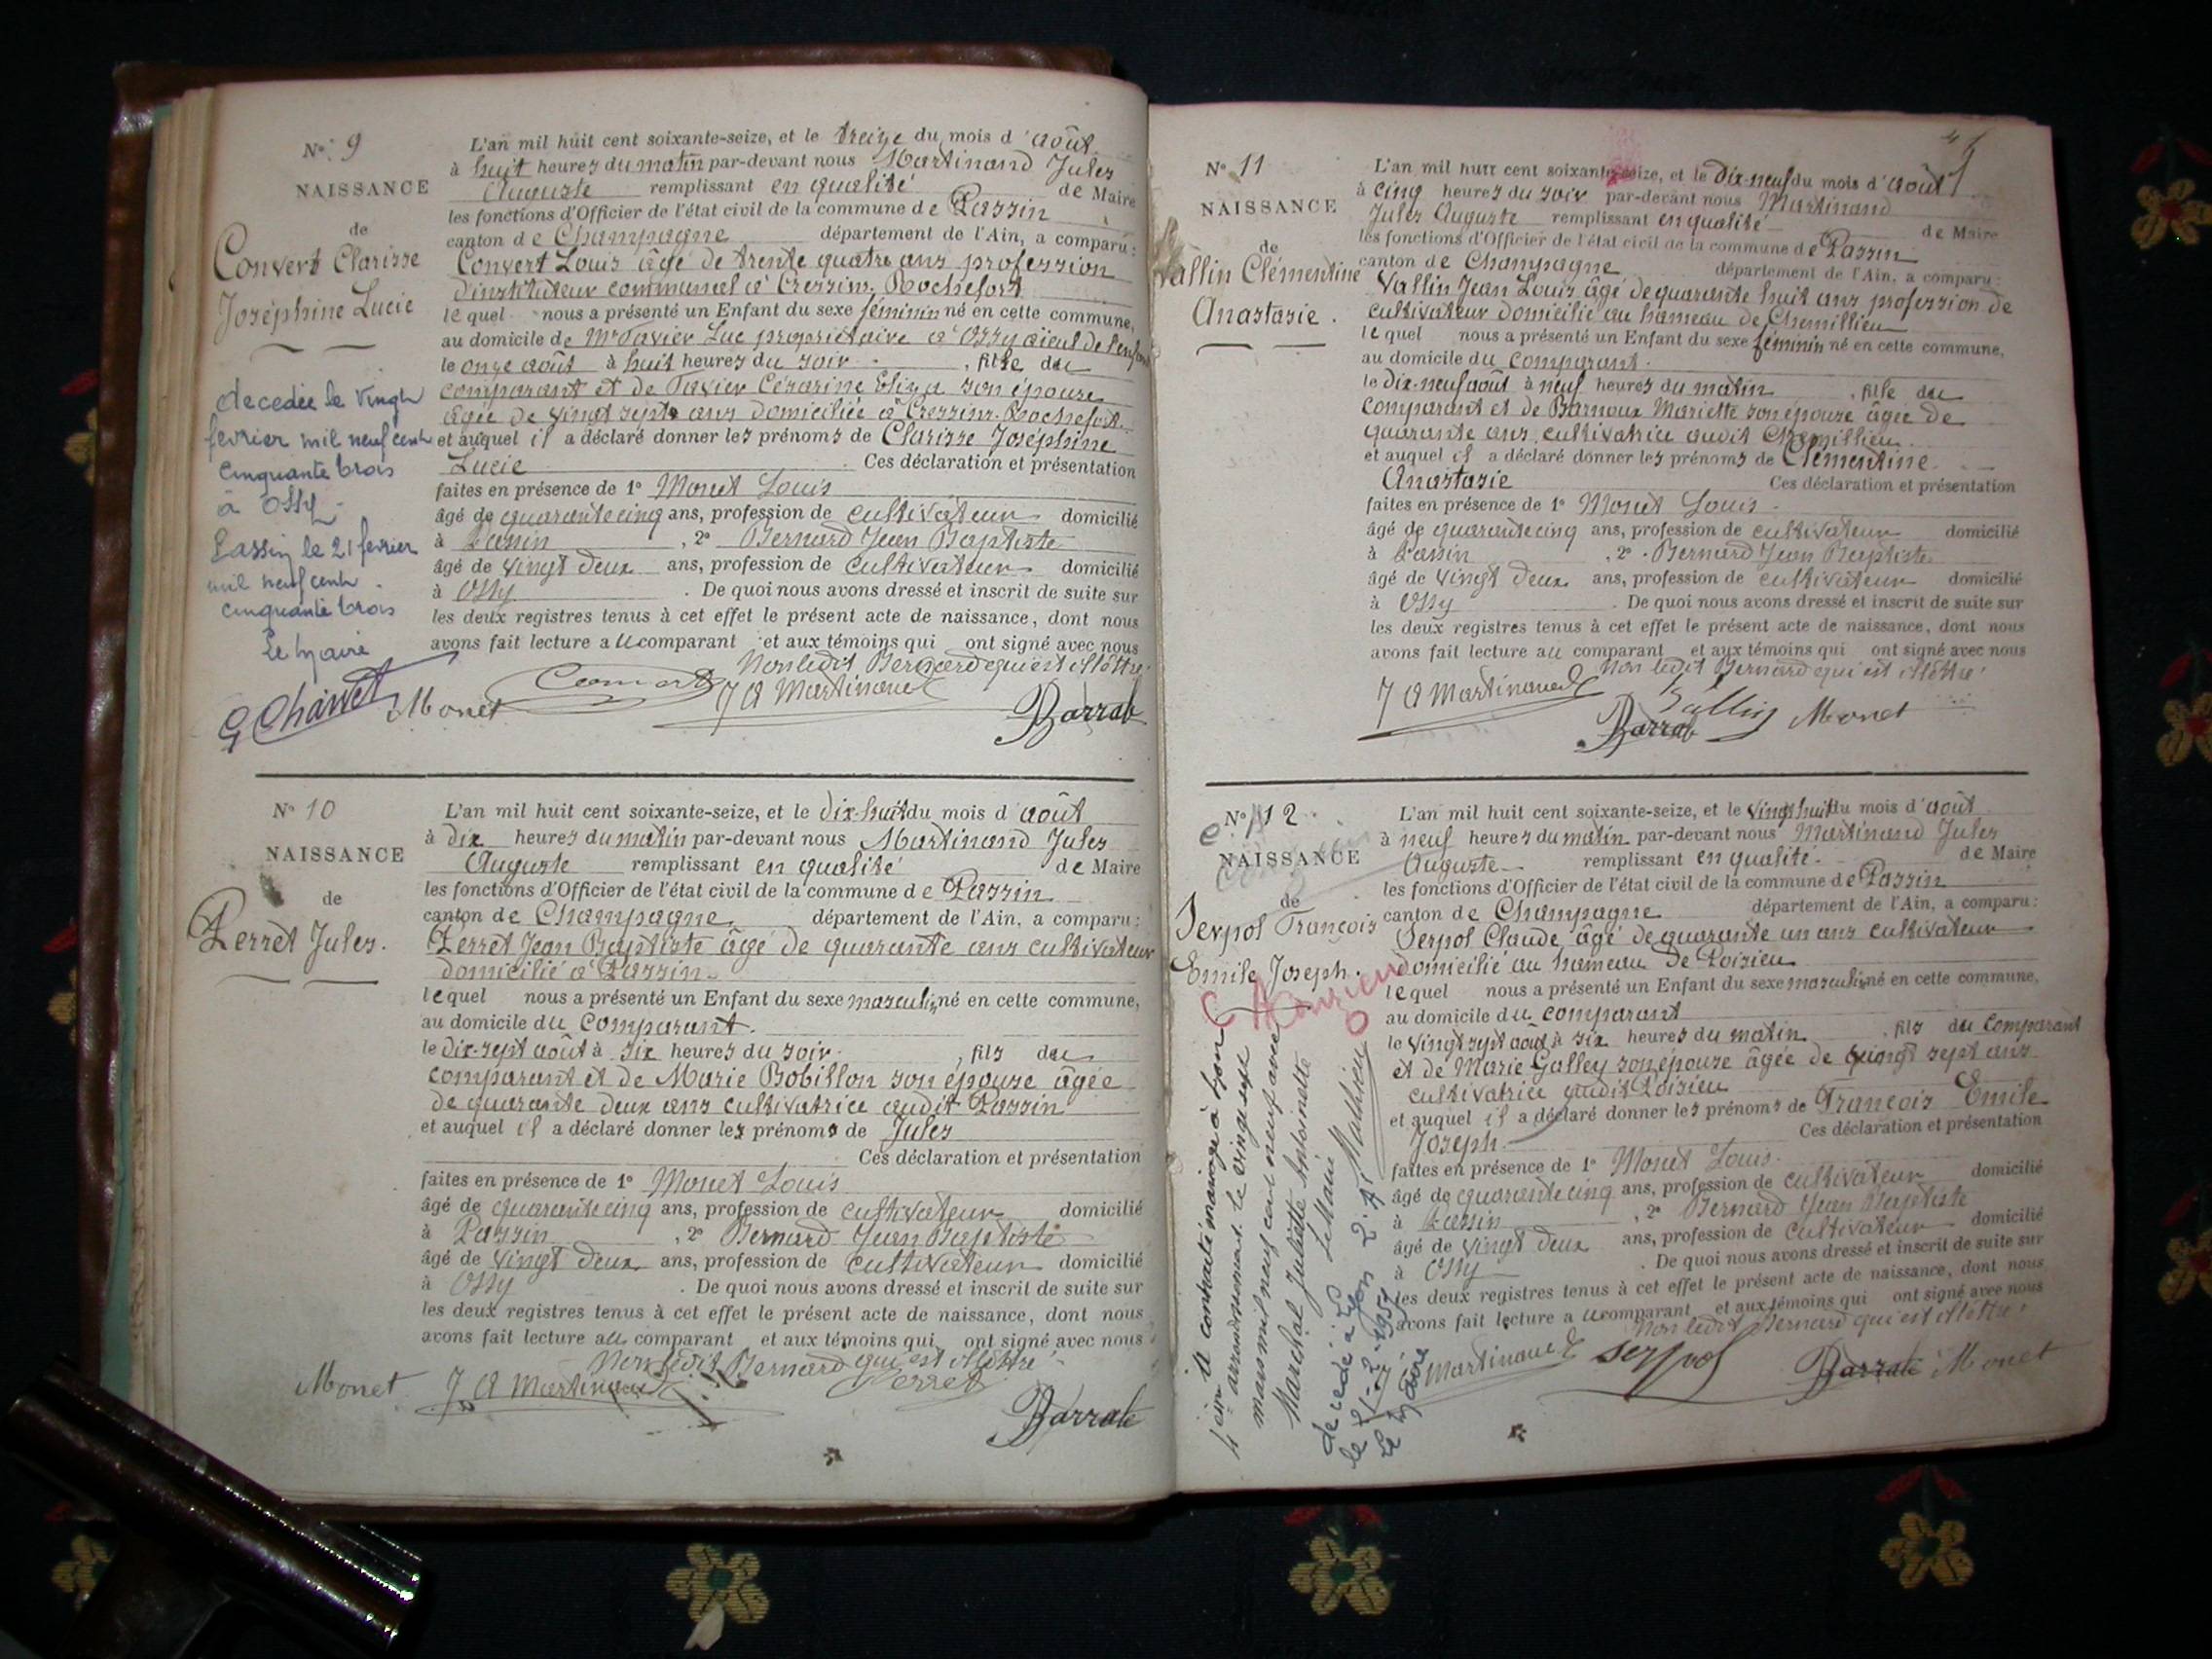 N° 9
NAISSANCE
de
Convert Clarisse
Joséphine Lucie
decedée le vingt
fevrier mil neuf cent
cinquante trois
à Ossy
Passin le 21 fevrier
mil neuf cent
cinquante trois
Le Maire
L'an mil huit cent soixante-seize, et le treize du mois d'août
à huit heures du matin par-devant nous Martinand Jules
Auguste remplissant en qualité de Maire
les fonctions d'Officier de l'état civil de la commune de Passin
canton de Champagne département de l'Ain, a comparu:
Convert Louis âgé de trente quatre ans profession
d'instituteur communal à Cressin-Rochefort
lequel nous a présenté un Enfant du sexe féminin né en cette commune,
au domicile de Mr Tavier Luc propriétaire à Ossy aïeul de l'enfant
le onze août à huit heures du soir, fille du
comparant et de Tavier Césarine Eliza son épouse
âgée de vingt sept ans domiciliée à Cressin-Rochefort
et auquel il a déclaré donner les prénoms de Clarisse Joséphine
Lucie Ces déclaration et présentation
faites en présence de 1° Monet Louis
âgé de quarante cinq ans, profession de cultivateur domicilié
à Passin, 2° Bernard Jean Baptiste
âgé de vingt deux ans, profession de cultivateur domicilié
à Ossy. De quoi nous avons dressé et inscrit de suite sur
les deux registres tenus à cet effet le présent acte de naissance, dont nous
avons fait lecture au comparant et aux témoins qui ont signé avec nous
Non ledit Bernard qui est illettré.
Monet Convert J A Martinand Barrab
N° 10
NAISSANCE
de
Perret Jules.
L'an mil huit cent soixante-seize, et le dix-huit du mois d'août
à dix heures du matin par-devant nous Martinand Jules
Auguste remplissant en qualité de Maire
les fonctions d'Officier de l'état civil de la commune de Passin
canton de Champagne département de l'Ain, a comparu:
Perret Jean Baptiste âgé de quarante ans cultivateur
domicilié à Passin
lequel nous a présenté un Enfant du sexe masculin né en cette commune,
au domicile du comparant.
le dix-sept août à six heures du soir, fils du
comparant et de Marie Bobillon son épouse âgée
de quarante deux ans cultivatrice audit Passin
et auquel il a déclaré donner les prénoms de Jules
Ces déclaration et présentation
faites en présence de 1° Monet Louis
âgé de quarante cinq ans, profession de cultivateur domicilié
à Passin, 2° Bernard Jean Baptiste
âgé de vingt deux ans, profession de cultivateur domicilié
à Ossy. De quoi nous avons dressé et inscrit de suite sur
les deux registres tenus à cet effet le présent acte de naissance, dont nous
avons fait lecture au comparant et aux témoins qui ont signé avec nous
Non ledit Bernard qui est illettré.
Monet J A Martinand Perret Barrab
N° 11
NAISSANCE
de
Vallin Clémentine
Anastasie.
L'an mil huit cent soixante-seize, et le dix-neuf du mois d'août
à cinq heures du soir par-devant nous Martinand
Jules Auguste remplissant en qualité de Maire
les fonctions d'Officier de l'état civil de la commune de Passin
canton de Champagne département de l'Ain, a comparu:
Vallin Jean Louis âgé de quarante huit ans profession de
cultivateur domicilié au hameau de Chemillieu
lequel nous a présenté un Enfant du sexe féminin né en cette commune,
au domicile du comparant.
le dix-neuf août à neuf heures du matin, fille du
comparant et de Barnoux Mariette son épouse âgée de
quarante ans, cultivatrice audit Chemillieu
et auquel il a déclaré donner les prénoms de Clémentine
Anastasie Ces déclaration et présentation
faites en présence de 1° Monet Louis
âgé de quarante cinq ans, profession de cultivateur domicilié
à Passin, 2° Bernard Jean Baptiste
âgé de vingt deux ans, profession de cultivateur domicilié
à Ossy. De quoi nous avons dressé et inscrit de suite sur
les deux registres tenus à cet effet le présent acte de naissance, dont nous
avons fait lecture au comparant et aux témoins qui ont signé avec nous
Non ledit Bernard qui est illettré.
J A Martinand Vallin Monet
Barrab
N° 12
NAISSANCE
de
Serpol François
Emile Joseph.
a contracté mariage à Lyon
arrondissement le vingt sept
mars mil neuf cent neuf avec
Marechal Juliette Antoinette
Le Maire
Mathieu
decedé à Lyon 2e A
le 21-2-1951
Le Maire
L'an mil huit cent soixante-seize, et le vingt huit du mois d'août
à neuf heures du matin par-devant nous Martinand Jules
Auguste remplissant en qualité de Maire
les fonctions d'Officier de l'état civil de la commune de Passin
canton de Champagne département de l'Ain, a comparu:
Serpol Claude âgé de quarante un ans cultivateur
domicilié au hameau de Poisieu
lequel nous a présenté un Enfant du sexe masculin né en cette commune,
au domicile du comparant
le vingt sept août à six heures du matin, fils du comparant
et de Marie Galley son épouse âgée de vingt sept ans
cultivatrice audit Poisieu
et auquel il a déclaré donner les prénoms de François Emile
Joseph Ces déclaration et présentation
faites en présence de 1° Monet Louis
âgé de quarante cinq ans, profession de cultivateur domicilié
à Passin, 2° Bernard Jean Baptiste
âgé de vingt deux ans, profession de cultivateur domicilié
à Ossy. De quoi nous avons dressé et inscrit de suite sur
les deux registres tenus à cet effet le présent acte de naissance, dont nous
avons fait lecture au comparant et aux témoins qui ont signé avec nous
Non ledit Bernard qui est illettré.
Martinand Serpol Barrab Monet